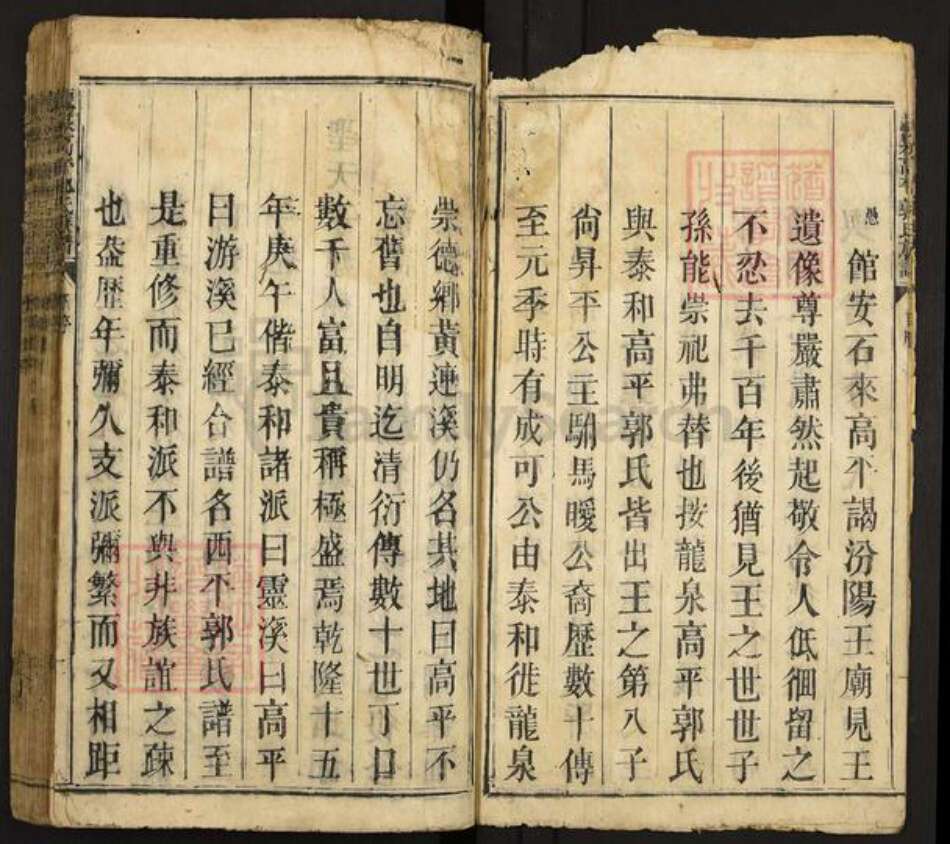 愚館安石來高平謁汾陽王廟見王
遺像尊嚴肅然起敬令人低徊留之
不忍去千百年後猶見王之世世子
孫能崇祀弗替也按龍泉高平郭氏
與泰和高平郭氏皆出王之第八子
尙昇平公主駙馬曖公裔歷數十傳
至元季時有成可公由泰和徙龍泉
崇德鄉黃連溪仍名其地曰高平不
忘舊也自明迄清衍傳數十世丁口
數千人富且貴稱極盛焉乾隆十五
年庚午偕泰和諸派曰靈溪曰高平
曰游溪已經合譜名西平郭氏譜至
是重修而泰和派不與非族誼之疎
也葢歷年彌久支派彌繁而又相距